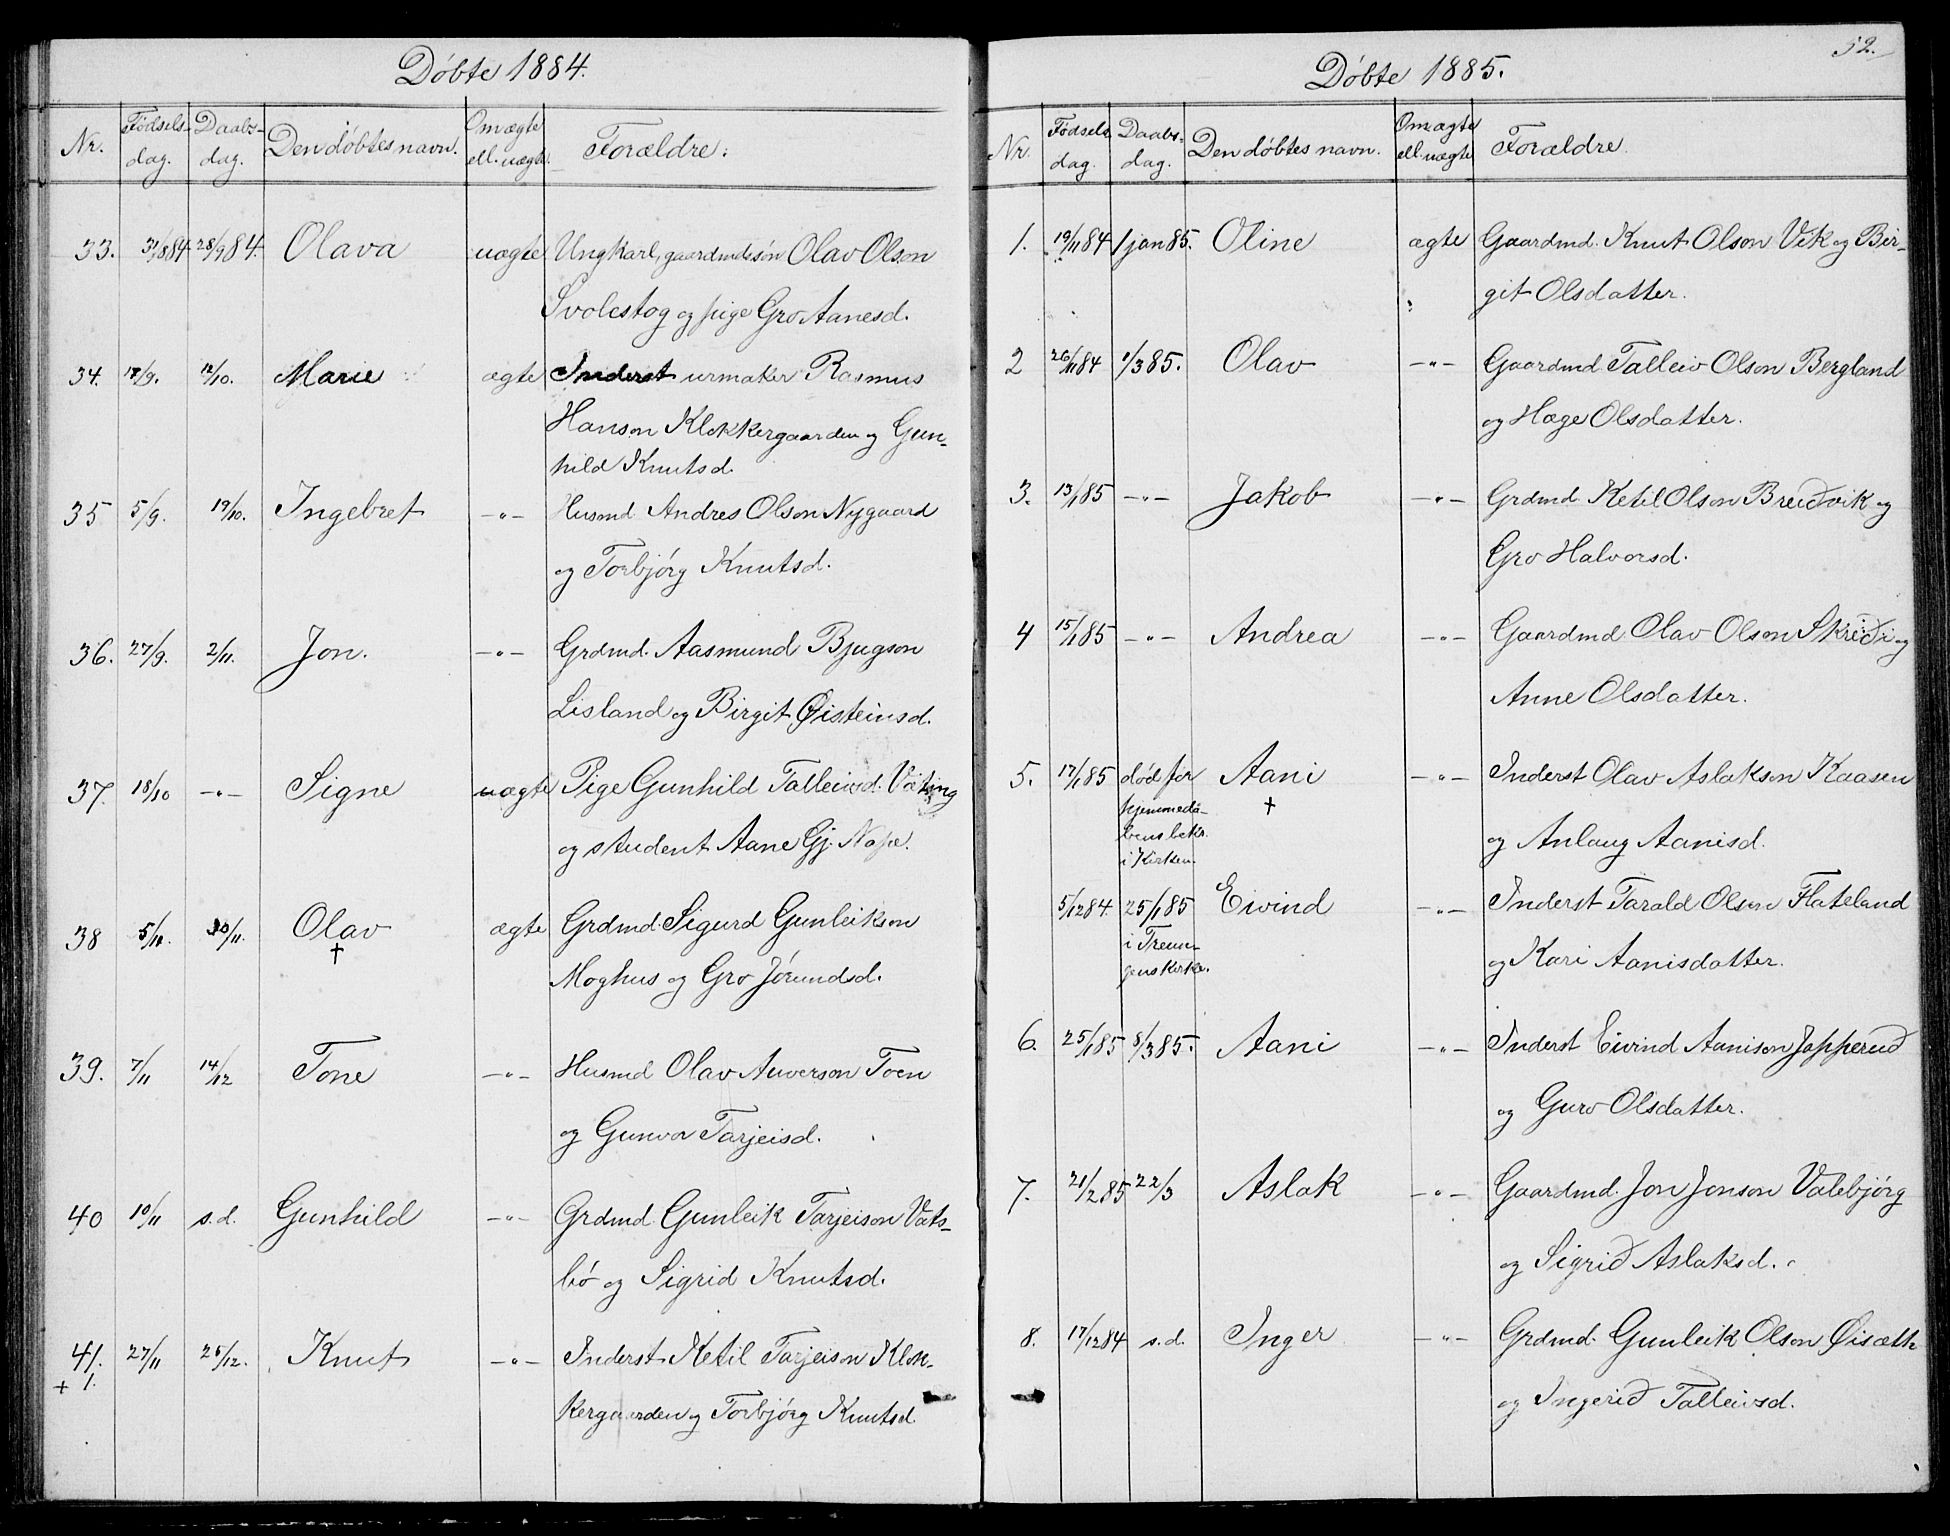 Döbte 1884.
Nr. Fødsels-dag. Daabs-dag. Den döbtes navn. Om ægte ell. uægte Forældre:
33. 31/8 84 28/9 84. Olava uægte Ungkarl, gaardmdssøn Olav Olson
Svolestog og pige Gro Aanesd.
34. 17/9. 12/10. Marie ægte Inderst urmaker Rasmus
Hanson Klokkergaarden og Gun-
hild Knutsd.
35 5/9. 19/10. Ingebret -"- Husmd Andres Olson Nygaard
og Torbjörg Knutsd.
36. 27/9. 2/11. Jon. -"- Grdmd. Aasmund Bjugson
Lisland og Birgit Øisteinsd.
37. 18/10 -"- Signe uægte Pige Gunhild Talleivsd. Væting
og student Aane Gj. Nape.
38 5/11. 30/11. Olav ægte Grdmd. Sigurd Gunleikson
†
Moghus og Gro Jörundsd.
39. 7/11 14/12 Tone -"- Husmd Olav Auverson Toen
og Gunvor Tarjeisd.
40 10/11 s.d. Gunhild -"- Grdmd. Gunleik Tarjeison Vats-
bö og Sigrid Knutsd.
41. 27/11 26/12. Knut -"- Inderst Ketil Tarjeison Klok-
+ 1.
kergaarden og Torbjörg Knutsd
52.
Döbte 1885.
Nr. Fødsels dag. Daabs-dag. Den döbtes navn. Om ægte ell. uægte Forældre.
1. 19/11 84 1 jan 85. Oline ægte Gaardmd. Knut Olson Vik og Bir-
git Olsdatter.
2 26/11 84 1/3 85. Olav -"- Gaardmd Talleiv Olson Bergland
og Hæge Olsdatter.
3. 13/1 85 -"- Jakob -"- Grdmd Ketil Olson Breiðvik og
Gro Halvorsd.
4 15/1 85 -"- Andrea -"- Gaardmd. Olav Olson Skreiði og
Anne Olsdatter.
5. 17/1 85 död för Aani -"- Inderst Olav Aslakson Kaasen
hjemmedå- †
bens bekr. og Anlaug Aanisd.
i Kirken.
5/12 84. 25/1 85 Eivind -"- Inderst Tarald Olson Flateland
i Treun-
gens kirke. og Kari Aanisdatter.
6. 25/1 85 8/3 85. Aani -"- Inderst Eivind Aanison Japperuð
og Guro Olsdatter.
7. 21/2 85 22/3 Aslak -"- Gaardmd. Jon Jonson Valebjörg
og Sigrið Aslaksd.
8. 17/12 84 s.d. Inger -"- Grdmd. Gunleik Olson Øisæth
og Ingerið Talleivsd.